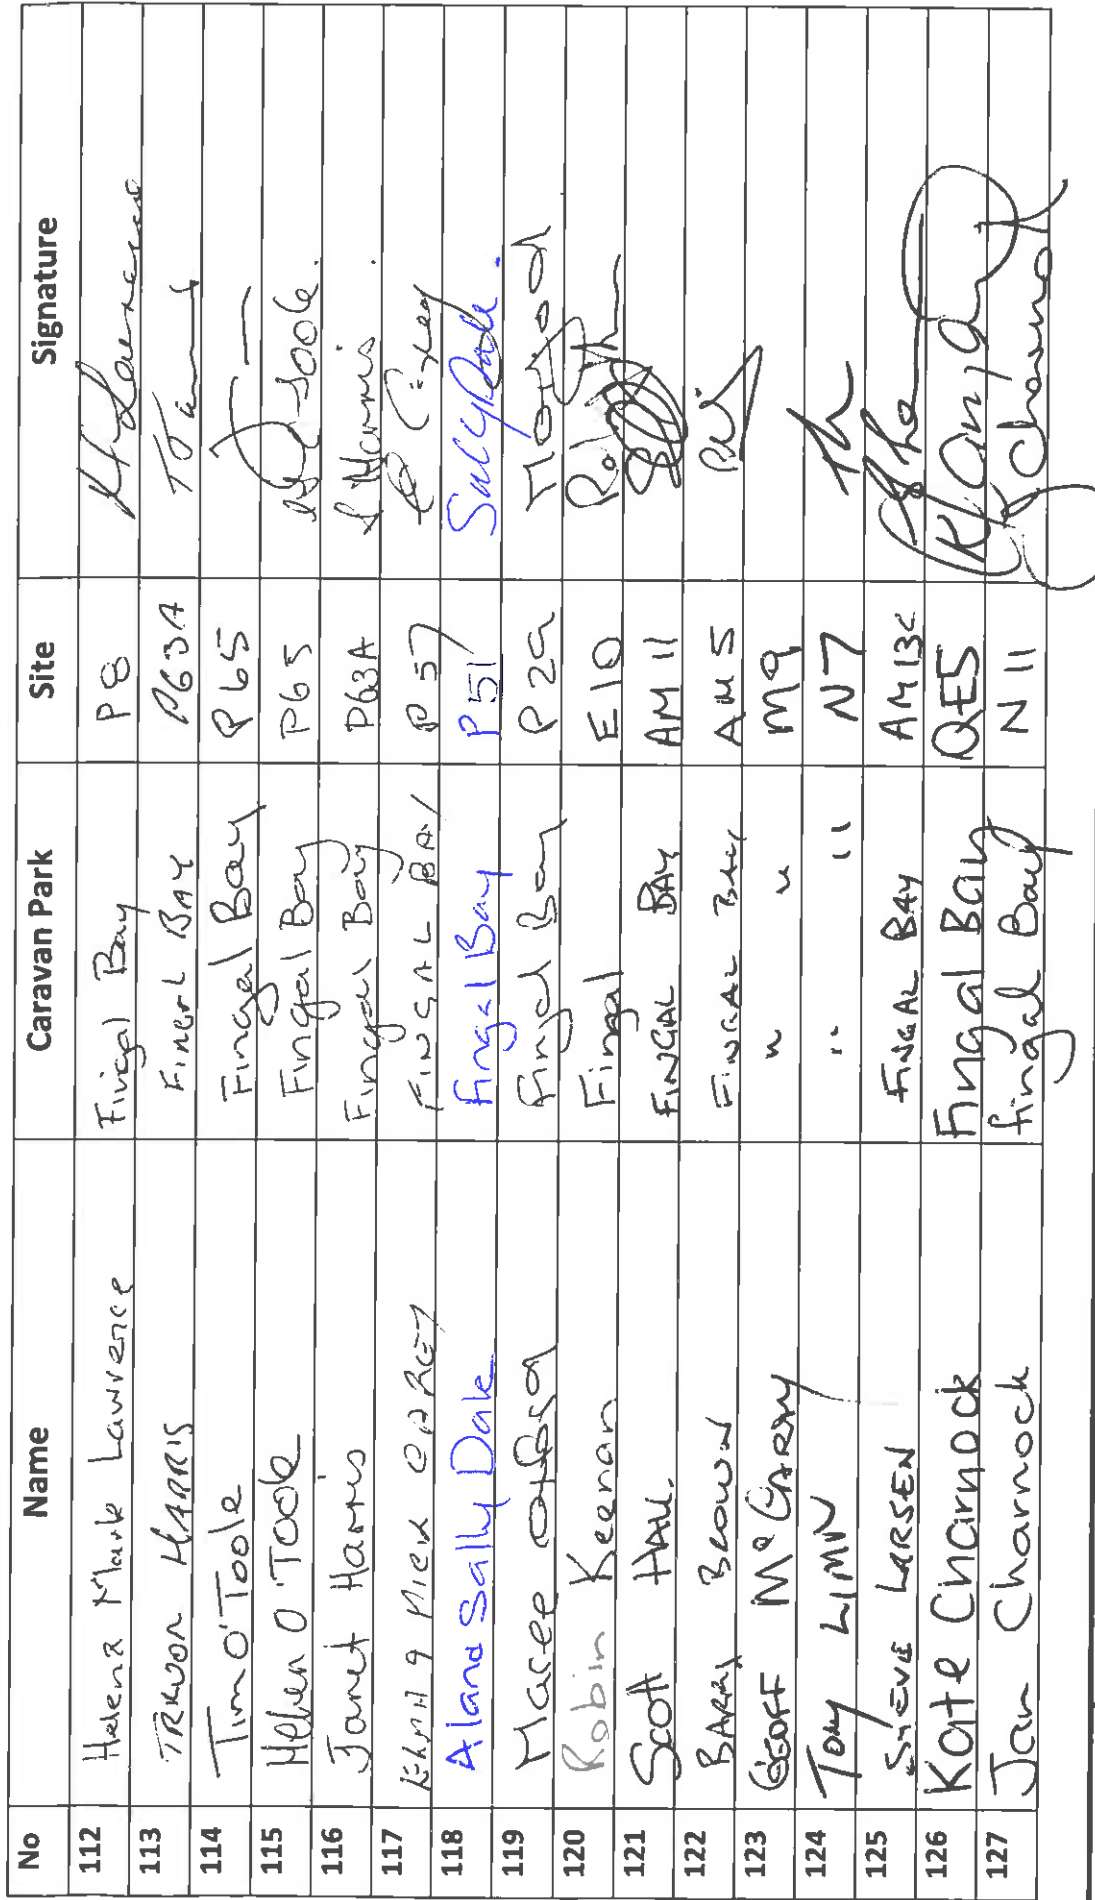 No Name Caravan Park Site Signature
112 Helena Mark Lawrence Fingal Bay P8
113 TREVOR HARRIS FINGAL BAY P63A
114 Tim O'Toole Fingal Bay P65
115 Helen O'Toole Fingal Bay P65
116 Janet Harris Fingal Bay P63A J Harris
117 FINGAL BAY P57
118 Alana Sally Dale Fingal Bay P51 Sally Dale.
119 Maree Fingal Bay P29
120 Robin Keenan Fingal E10
121 Scott HALL. FINGAL BAY AM 11
122 BARRY BROWN FINGAL BAY AM 5
123 GEOFF McCARRY " " M9
124 Tony LIMN " " N7
125 STEVE LARSEN FINGAL BAY AM13C
126 Kate Charnock Fingal Bay QE5
127 Jan Charnock Fingal Bay N11 J Charnock